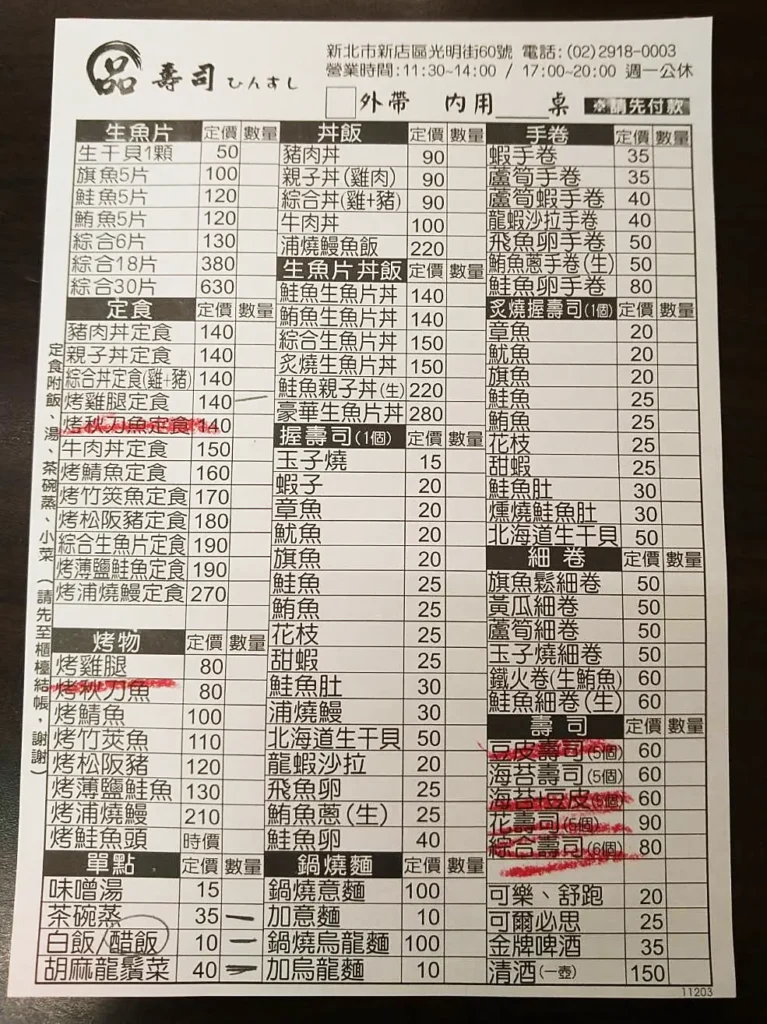 品 壽司 ひんすし
新北市新店區光明街60號 電話:(02)2918-0003
營業時間:11:30~14:00 / 17:00~20:00 週一公休
外帶 內用____桌 ※請先付款
生魚片 定價 數量
生干貝1顆 50
旗魚5片 100
鮭魚5片 120
鮪魚5片 120
綜合6片 130
綜合18片 380
綜合30片 630
定食 定價 數量
豬肉丼定食 140
親子丼定食 140
綜合丼定食(雞+豬) 140
烤雞腿定食 140 一
烤秋刀魚定食 140
牛肉丼定食 150
烤鯖魚定食 160
烤竹筴魚定食 170
烤松阪豬定食 180
綜合生魚片定食 190
烤薄鹽鮭魚定食 190
烤浦燒鰻定食 270
定食附飯、湯、茶碗蒸、小菜 (請先至櫃檯結帳,謝謝)
烤物 定價 數量
烤雞腿 80
烤秋刀魚 80
烤鯖魚 100
烤竹莢魚 110
烤松阪豬 120
烤薄鹽鮭魚 130
烤浦燒鰻 210
烤鮭魚頭 時價
單點 定價 數量
味噌湯 15
茶碗蒸 35 一
白飯/醋飯 10 一
胡麻龍鬚菜 40 一
丼飯 定價 數量
豬肉丼 90
親子丼(雞肉) 90
綜合丼(雞+豬) 90
牛肉丼 100
浦燒鰻魚飯 220
生魚片丼飯 定價 數量
鮭魚生魚片丼 140
鮪魚生魚片丼 140
綜合生魚片丼 150
炙燒生魚片丼 150
鮭魚親子丼(生) 220
豪華生魚片丼 280
握壽司(1個) 定價 數量
玉子燒 15
蝦子 20
章魚 20
魷魚 20
旗魚 20
鮭魚 25
鮪魚 25
花枝 25
甜蝦 25
鮭魚肚 30
浦燒鰻 30
北海道生干貝 50
龍蝦沙拉 20
飛魚卵 25
鮪魚蔥(生) 25
鮭魚卵 40
鍋燒麵 定價 數量
鍋燒意麵 100
加意麵 10
鍋燒烏龍麵 100
加烏龍麵 10
手卷 定價 數量
蝦手卷 35
蘆筍手卷 35
蘆筍蝦手卷 40
龍蝦沙拉手卷 40
飛魚卵手卷 50
鮪魚蔥手卷(生) 50
鮭魚卵手卷 80
炙燒握壽司(1個) 定價 數量
章魚 20
魷魚 20
旗魚 20
鮭魚 25
鮪魚 25
花枝 25
甜蝦 25
鮭魚肚 30
燻燒鮭魚肚 30
北海道生干貝 50
細卷 定價 數量
旗魚鬆細卷 50
黃瓜細卷 50
蘆筍細卷 50
玉子燒細卷 50
鐵火卷(生鮪魚) 60
鮭魚細卷(生) 60
壽司 定價 數量
豆皮壽司(5個) 60
海苔壽司(5個) 60
海苔+豆皮(6個) 60
花壽司(5個) 90
綜合壽司(6個) 80
可樂、舒跑 20
可爾必思 25
金牌啤酒 35
清酒(一壺) 150
11203